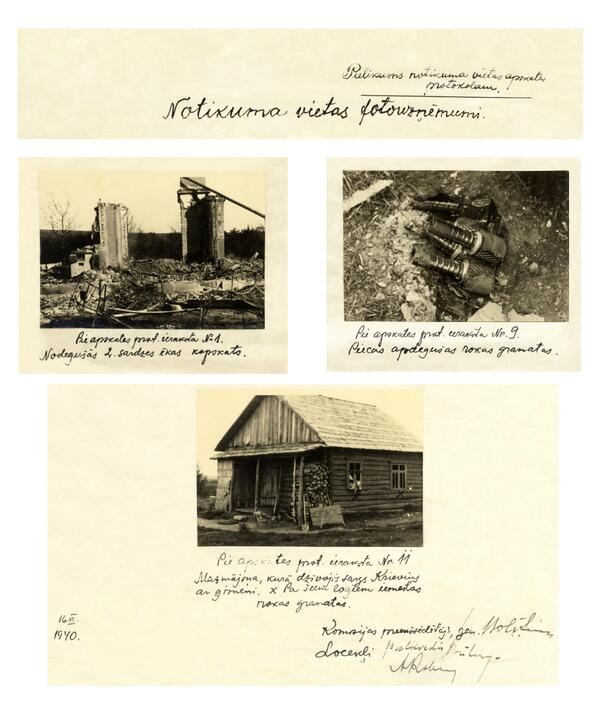 Pielikums notikuma vietas apskates
protokolam.
Notikuma vietas fotouzņēmumi.
Pie apskates prot. ieraksta № 1.
Nodegušās 2. sardzes ēkas kopskats.
Pie apskates prot. ieraksta Nr. 9.
Piecas apdegušas rokas granatas.
Pie apskates prot. ieraksta Nr. 11
Mazmājiņa, kurā dzīvojis sargs Krieviņš
ar ģimeni. x Pa šiem logiem iemestas
rokas granatas.
16.VI.
1940.
Komisijas priekšsēdētājs, gen.
Locekļi